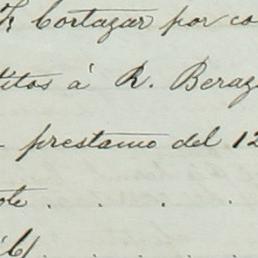 Cortazar por co
titos á R. Beraz
prestamo del 12
ote . . . .